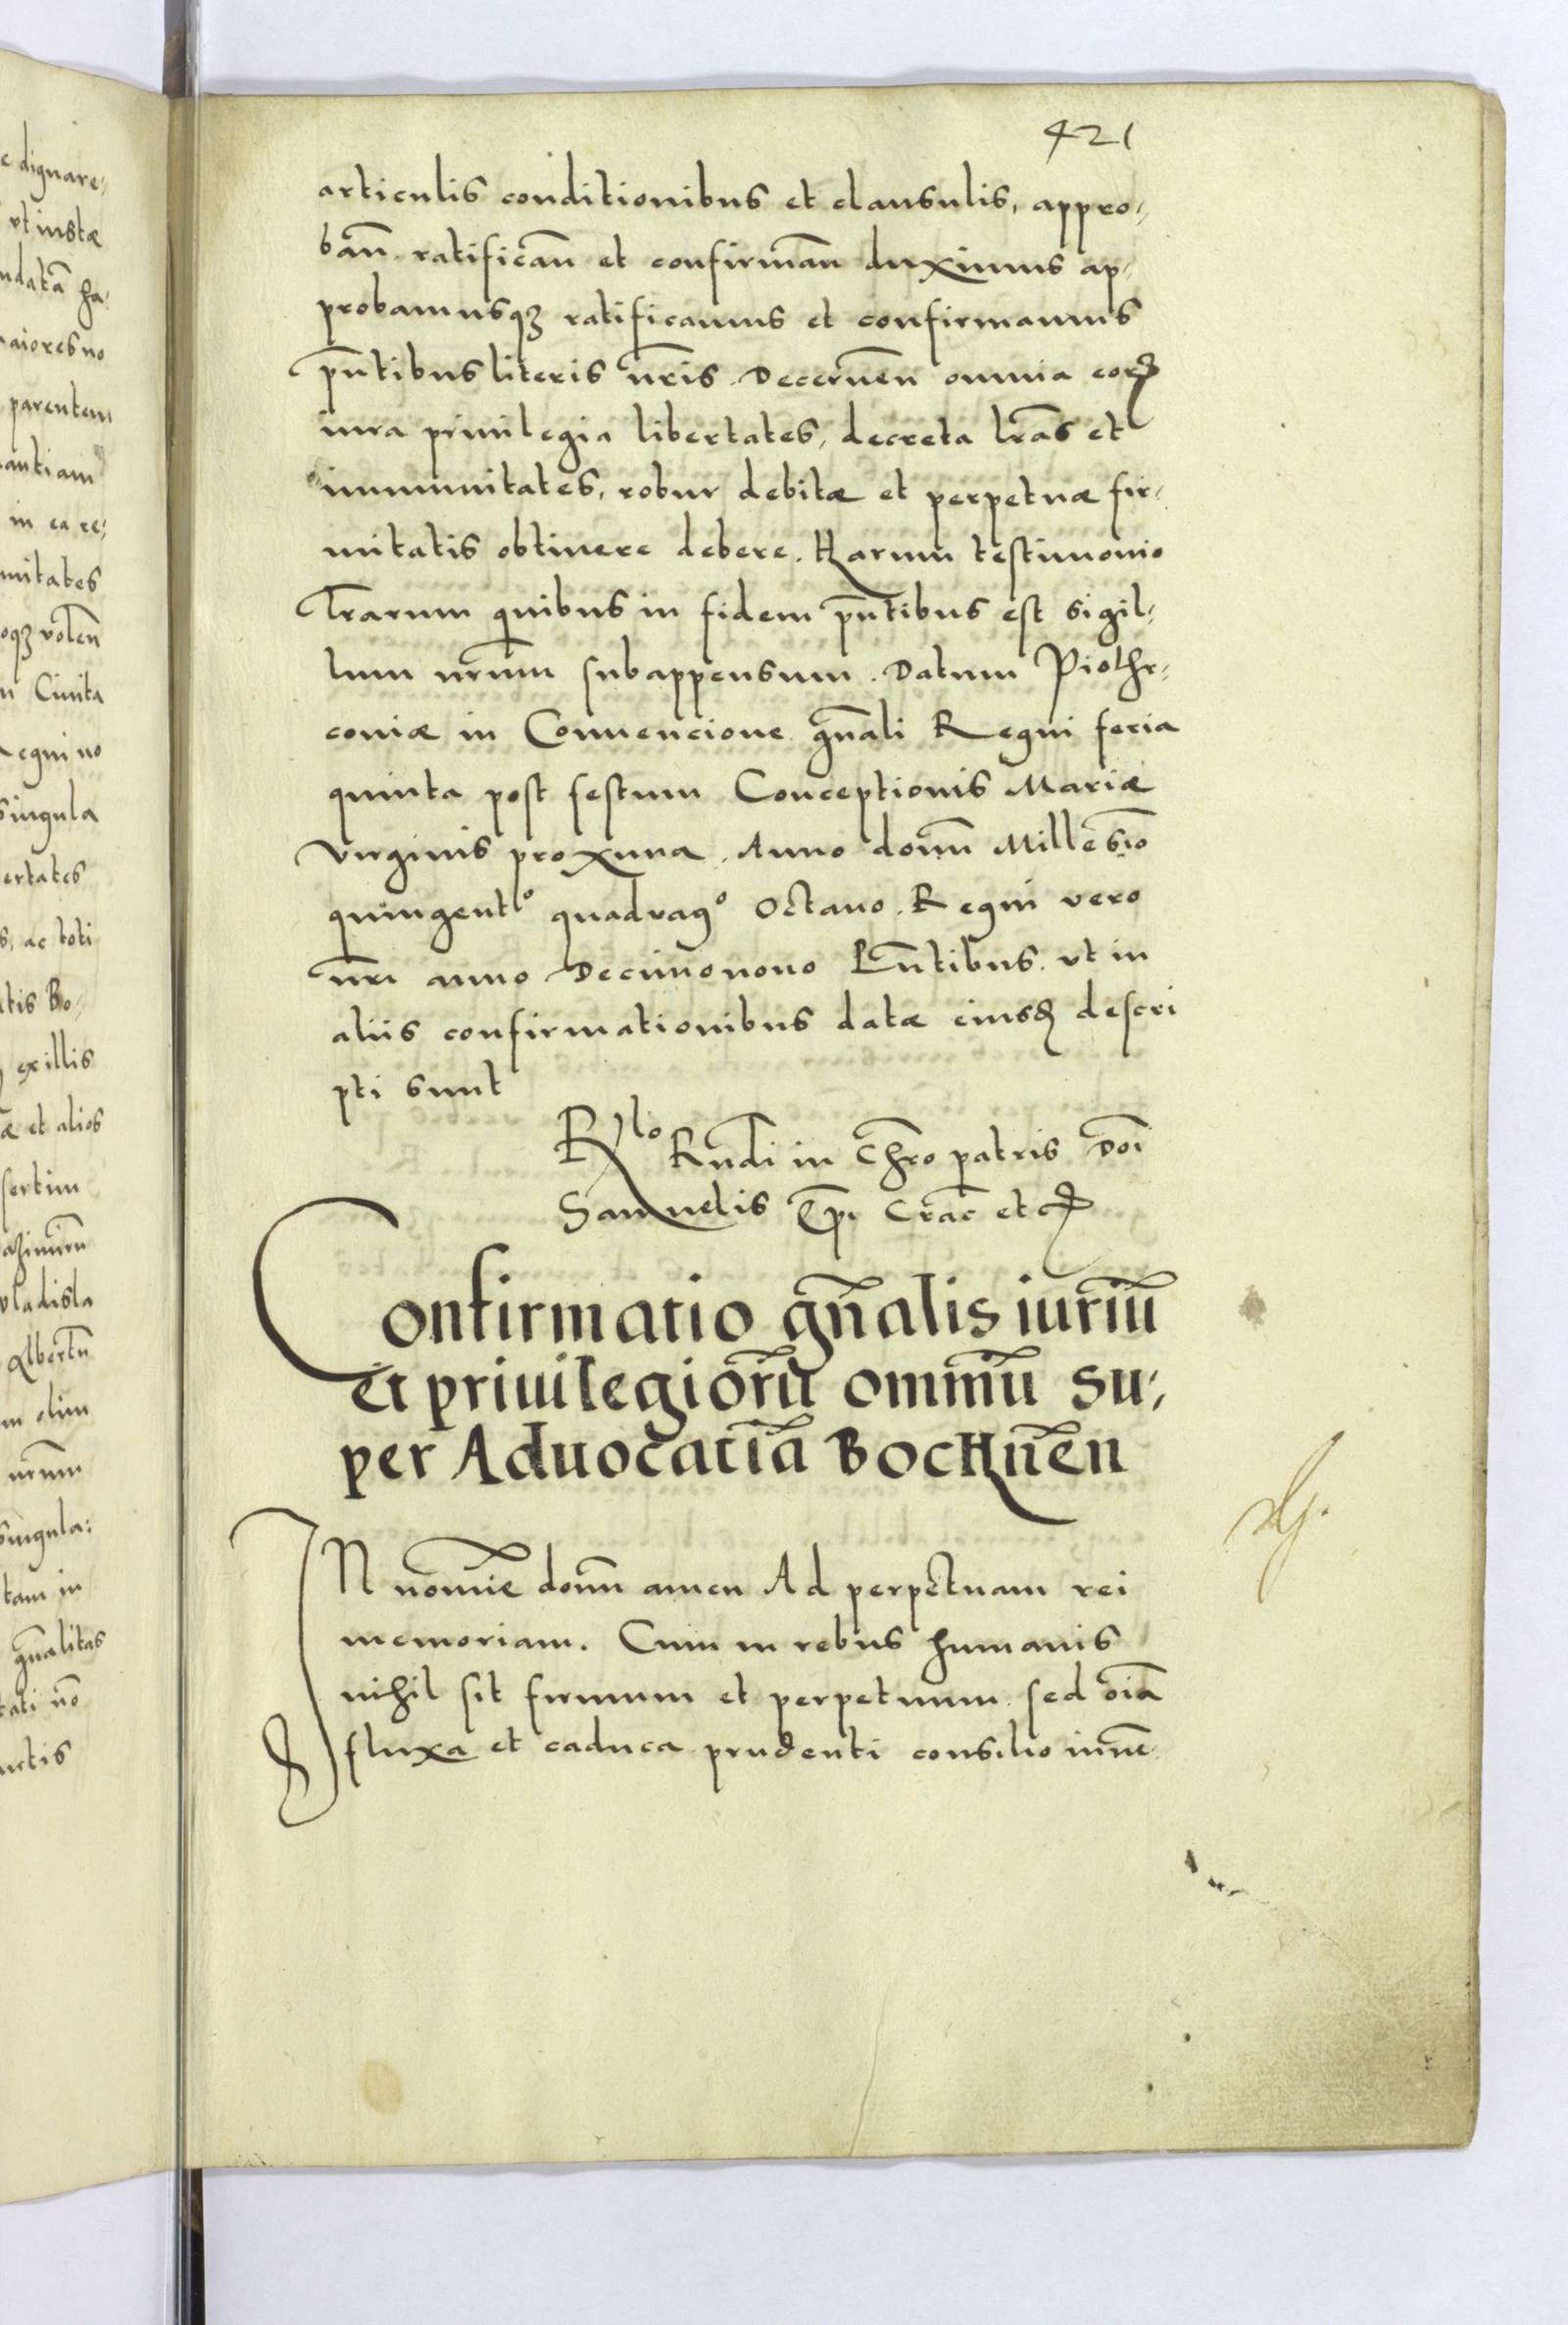 421
articulis conditionibus et clausulis, appro-
bañ. ratificañ et confirmañ duximus ap-
probamusqꝫ ratificamus et confirmamus
p̃ntibus literis nr̃is. Decerneñ omnia eorꝝ
iura priuilegia libertates, decreta lr̃as et
immunitates, robur debitæ et perpetuæ fir-
mitatis obtinere debere. Harum testimonio
lr̃arum quibus in fidem p̃ntibus est sigil-
lum nr̃um subappensum. Datum Piothr-
coviæ in Convencione gñali Regni feria
quinta post festum Conceptionis Mariæ
virginis proxima. Anno domĩ Millesĩo
quingentº quadragº Octauo. Regni vero
nr̃i anno Decimonono P̃ntibus. vt in
aliis confirmationibus datæ eiusdẽ descri
pti sunt
Rlo Rñdi in Chr̃o patris Doĩ
Samuelis Ep̃i Crac̃ etc
Confirmatio gñalis iuriũ
et priuilegiorũ omniũ su-
per Aduocatiã Bochneñ
IN nomĩe domĩ amen Ad perpetuam rei
memoriam. Cum in rebus humanis
nihil sit firmum et perpetuum sed oĩa
fluxa et caduca prudenti consilio inuẽ
c dignare-
vt iustæ
ndatã ha-
aiores no
parentem
antiam
in ea re-
nitates
oqꝫ voleñ
Ciuita
Regni no
singula
ertates
s, ac toti
tis Bo-
ex illis
æ et alios
sertim
azimirũ
vladisla
Albertũ
m olim
nr̃um
singula-
tam in
gñalitas
tati nõ